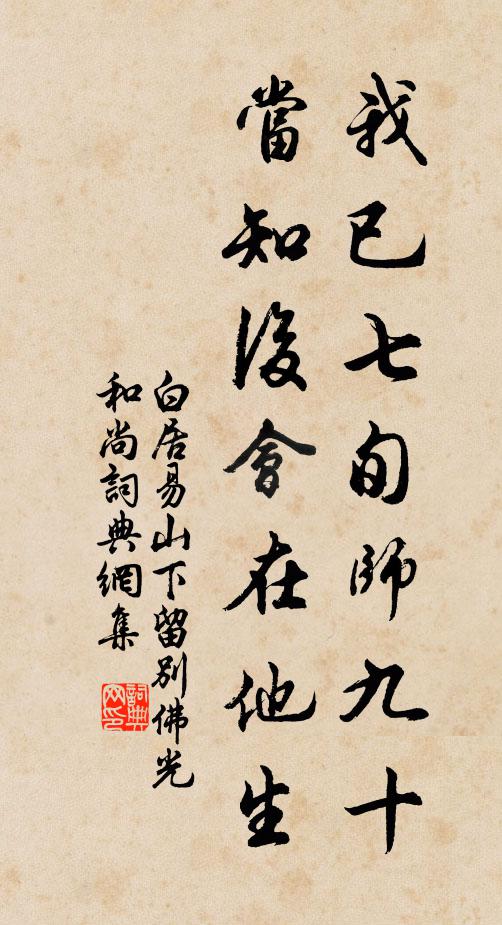 我已七旬師九十
當知後會在他生
白居易山下留別佛光
和尚詞典網集
詞典网印